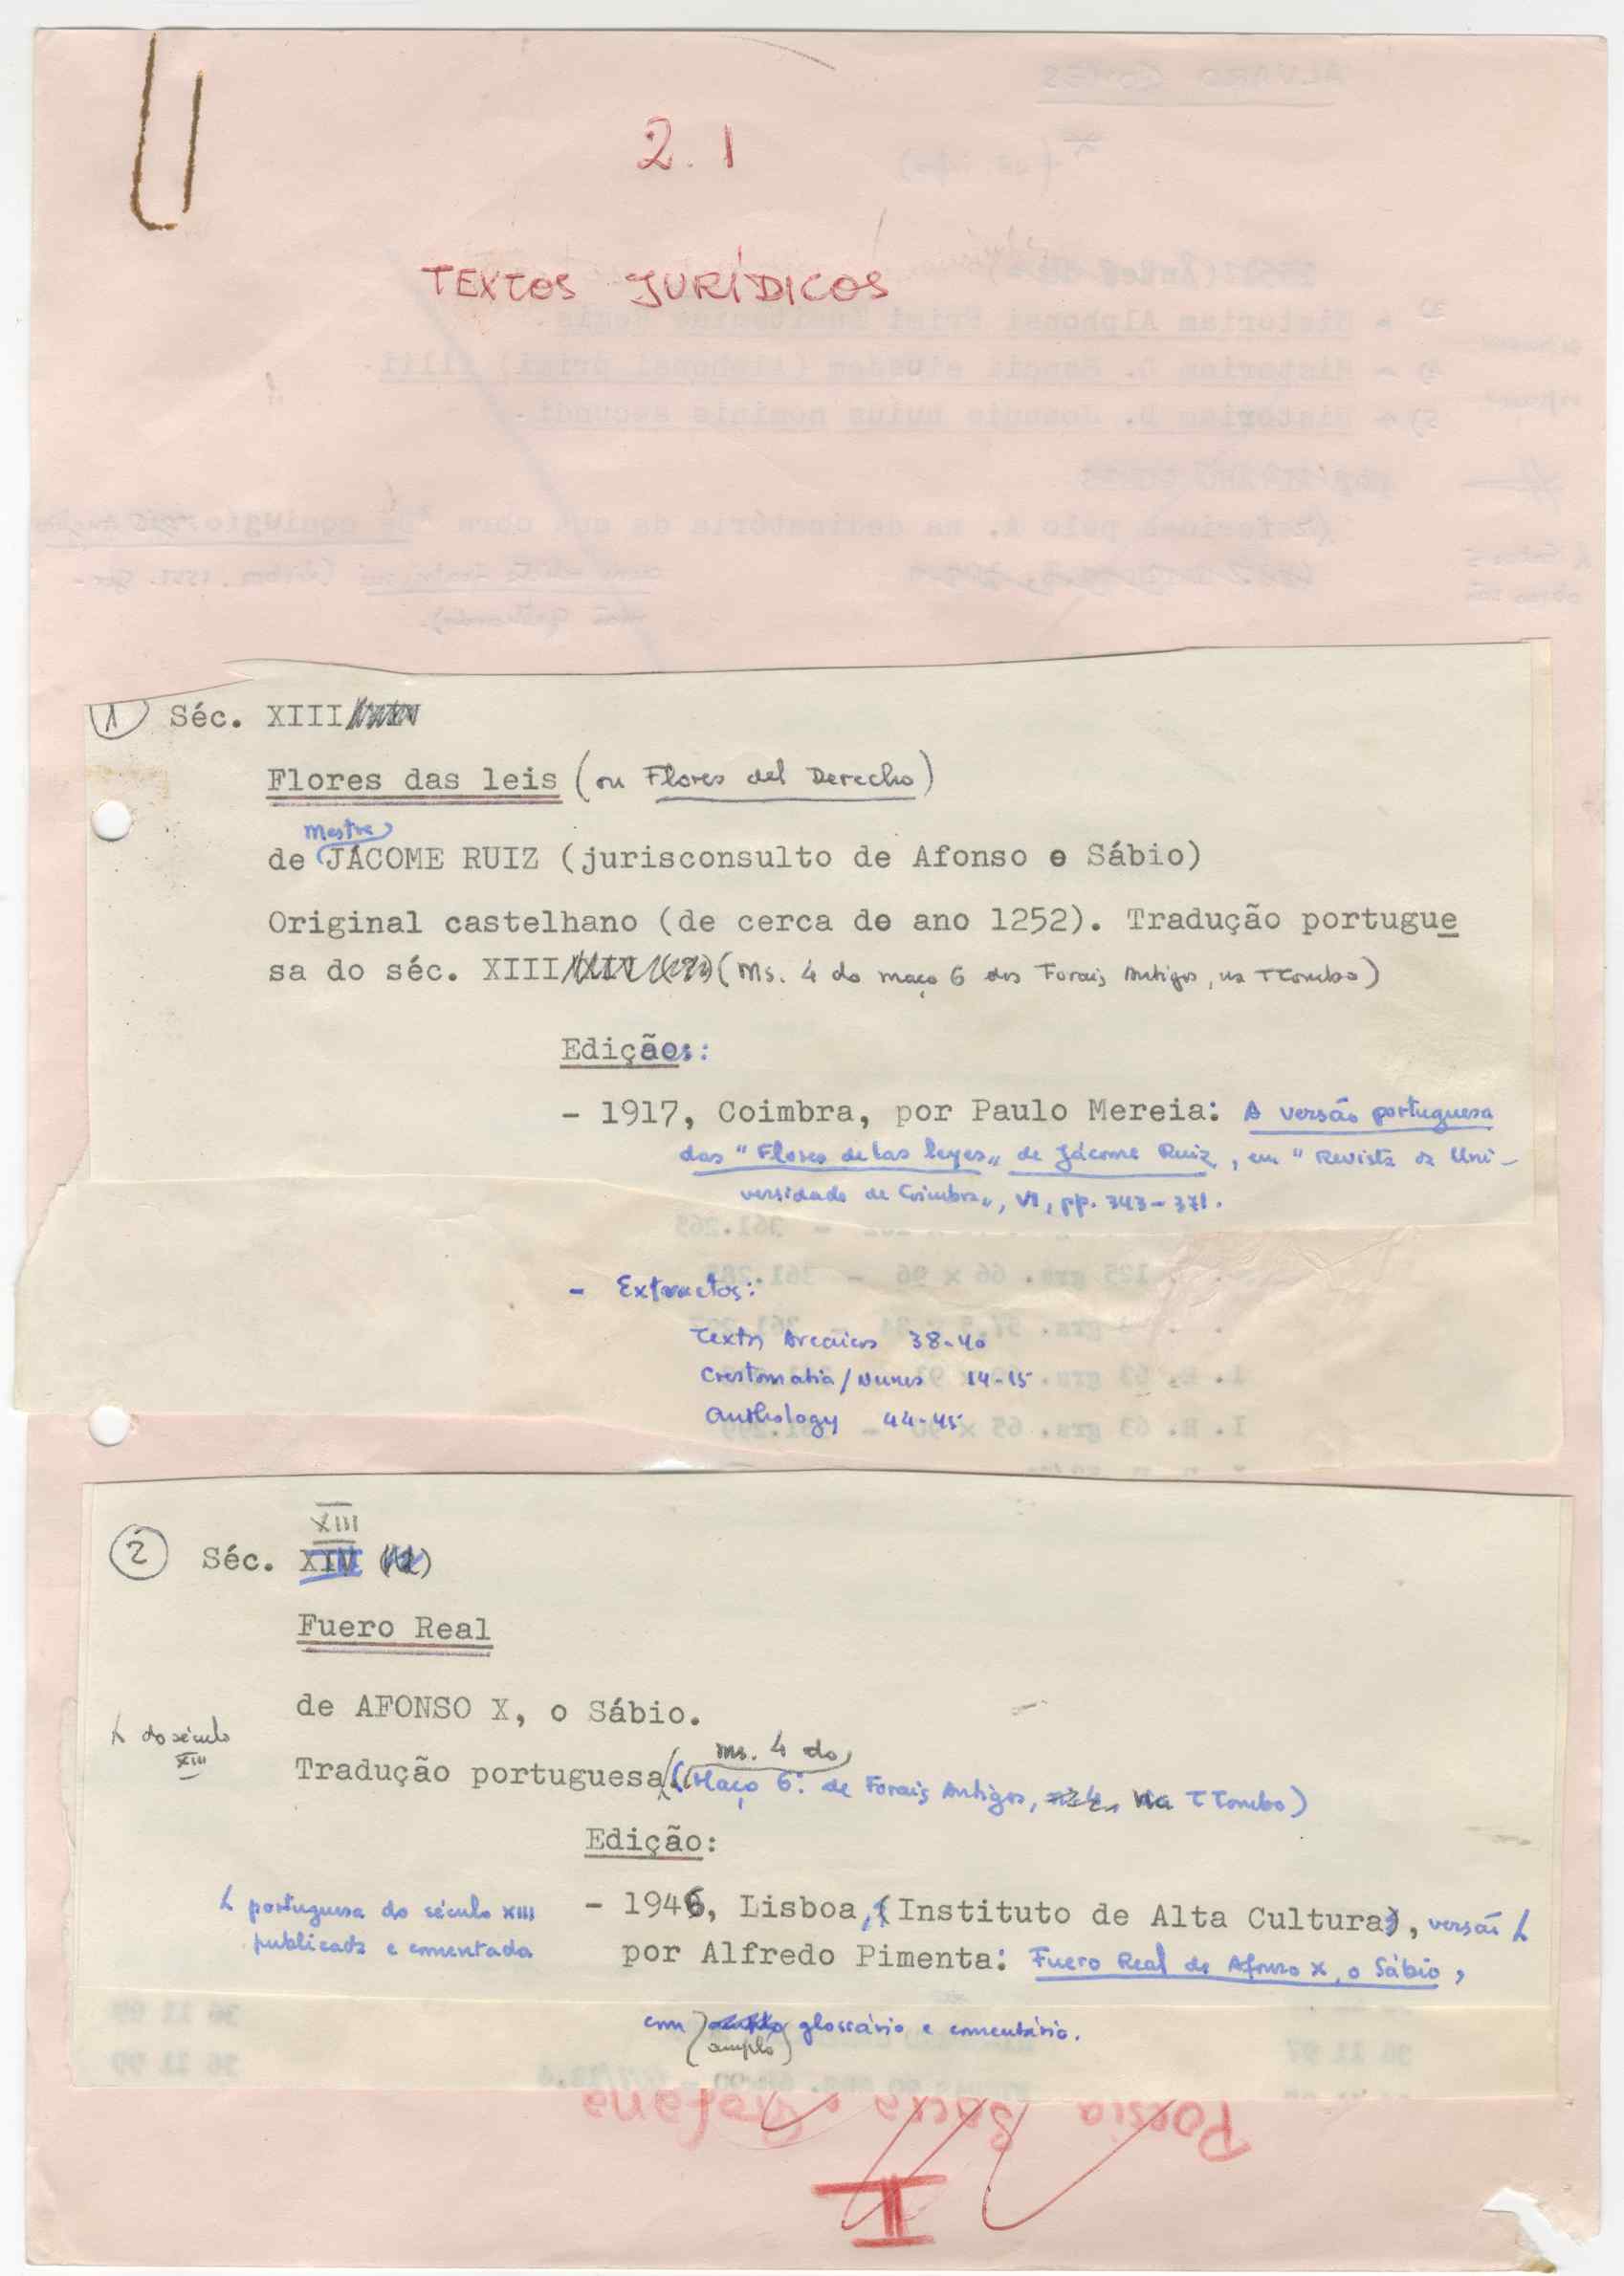 2.1
TEXTOS JURÍDICOS
1 Séc. XIII
Flores das leis (ou Flores del Derecho)
Mestre
de JÁCOME RUIZ (jurisconsulto de Afonso o Sábio)
Original castelhano (de cerca do ano 1252). Tradução portugue
sa do séc. XIII (Ms. 4 do maço 6 dos Forais Antigos, na TTombo)
Edições:
- 1917, Coimbra, por Paulo Mereia: A versão portuguesa
das "Flores de las leyes" de Jácome Ruiz, em "Revista da Uni-
versidade de Coimbra", VI, pp. 343-371.
- Extractos:
Textos Arcaicos 38-40
Crestomatia/Nunes 14-15
Anthology 44-45
XIII
2 Séc. XIV
Fuero Real
de AFONSO X, o Sábio.
do século
XIII
ms. 4 do
Tradução portuguesa (Maço 6º de Forais Antigos, na TTombo)
Edição:
- 1946, Lisboa, Instituto de Alta Cultura, versão
portuguesa do século XIII
publicada e comentada
por Alfredo Pimenta: Fuero Real de Afonso X, o Sábio,
com glossário e comentário.
(amplo)
Poesia Sacra e Profana
I